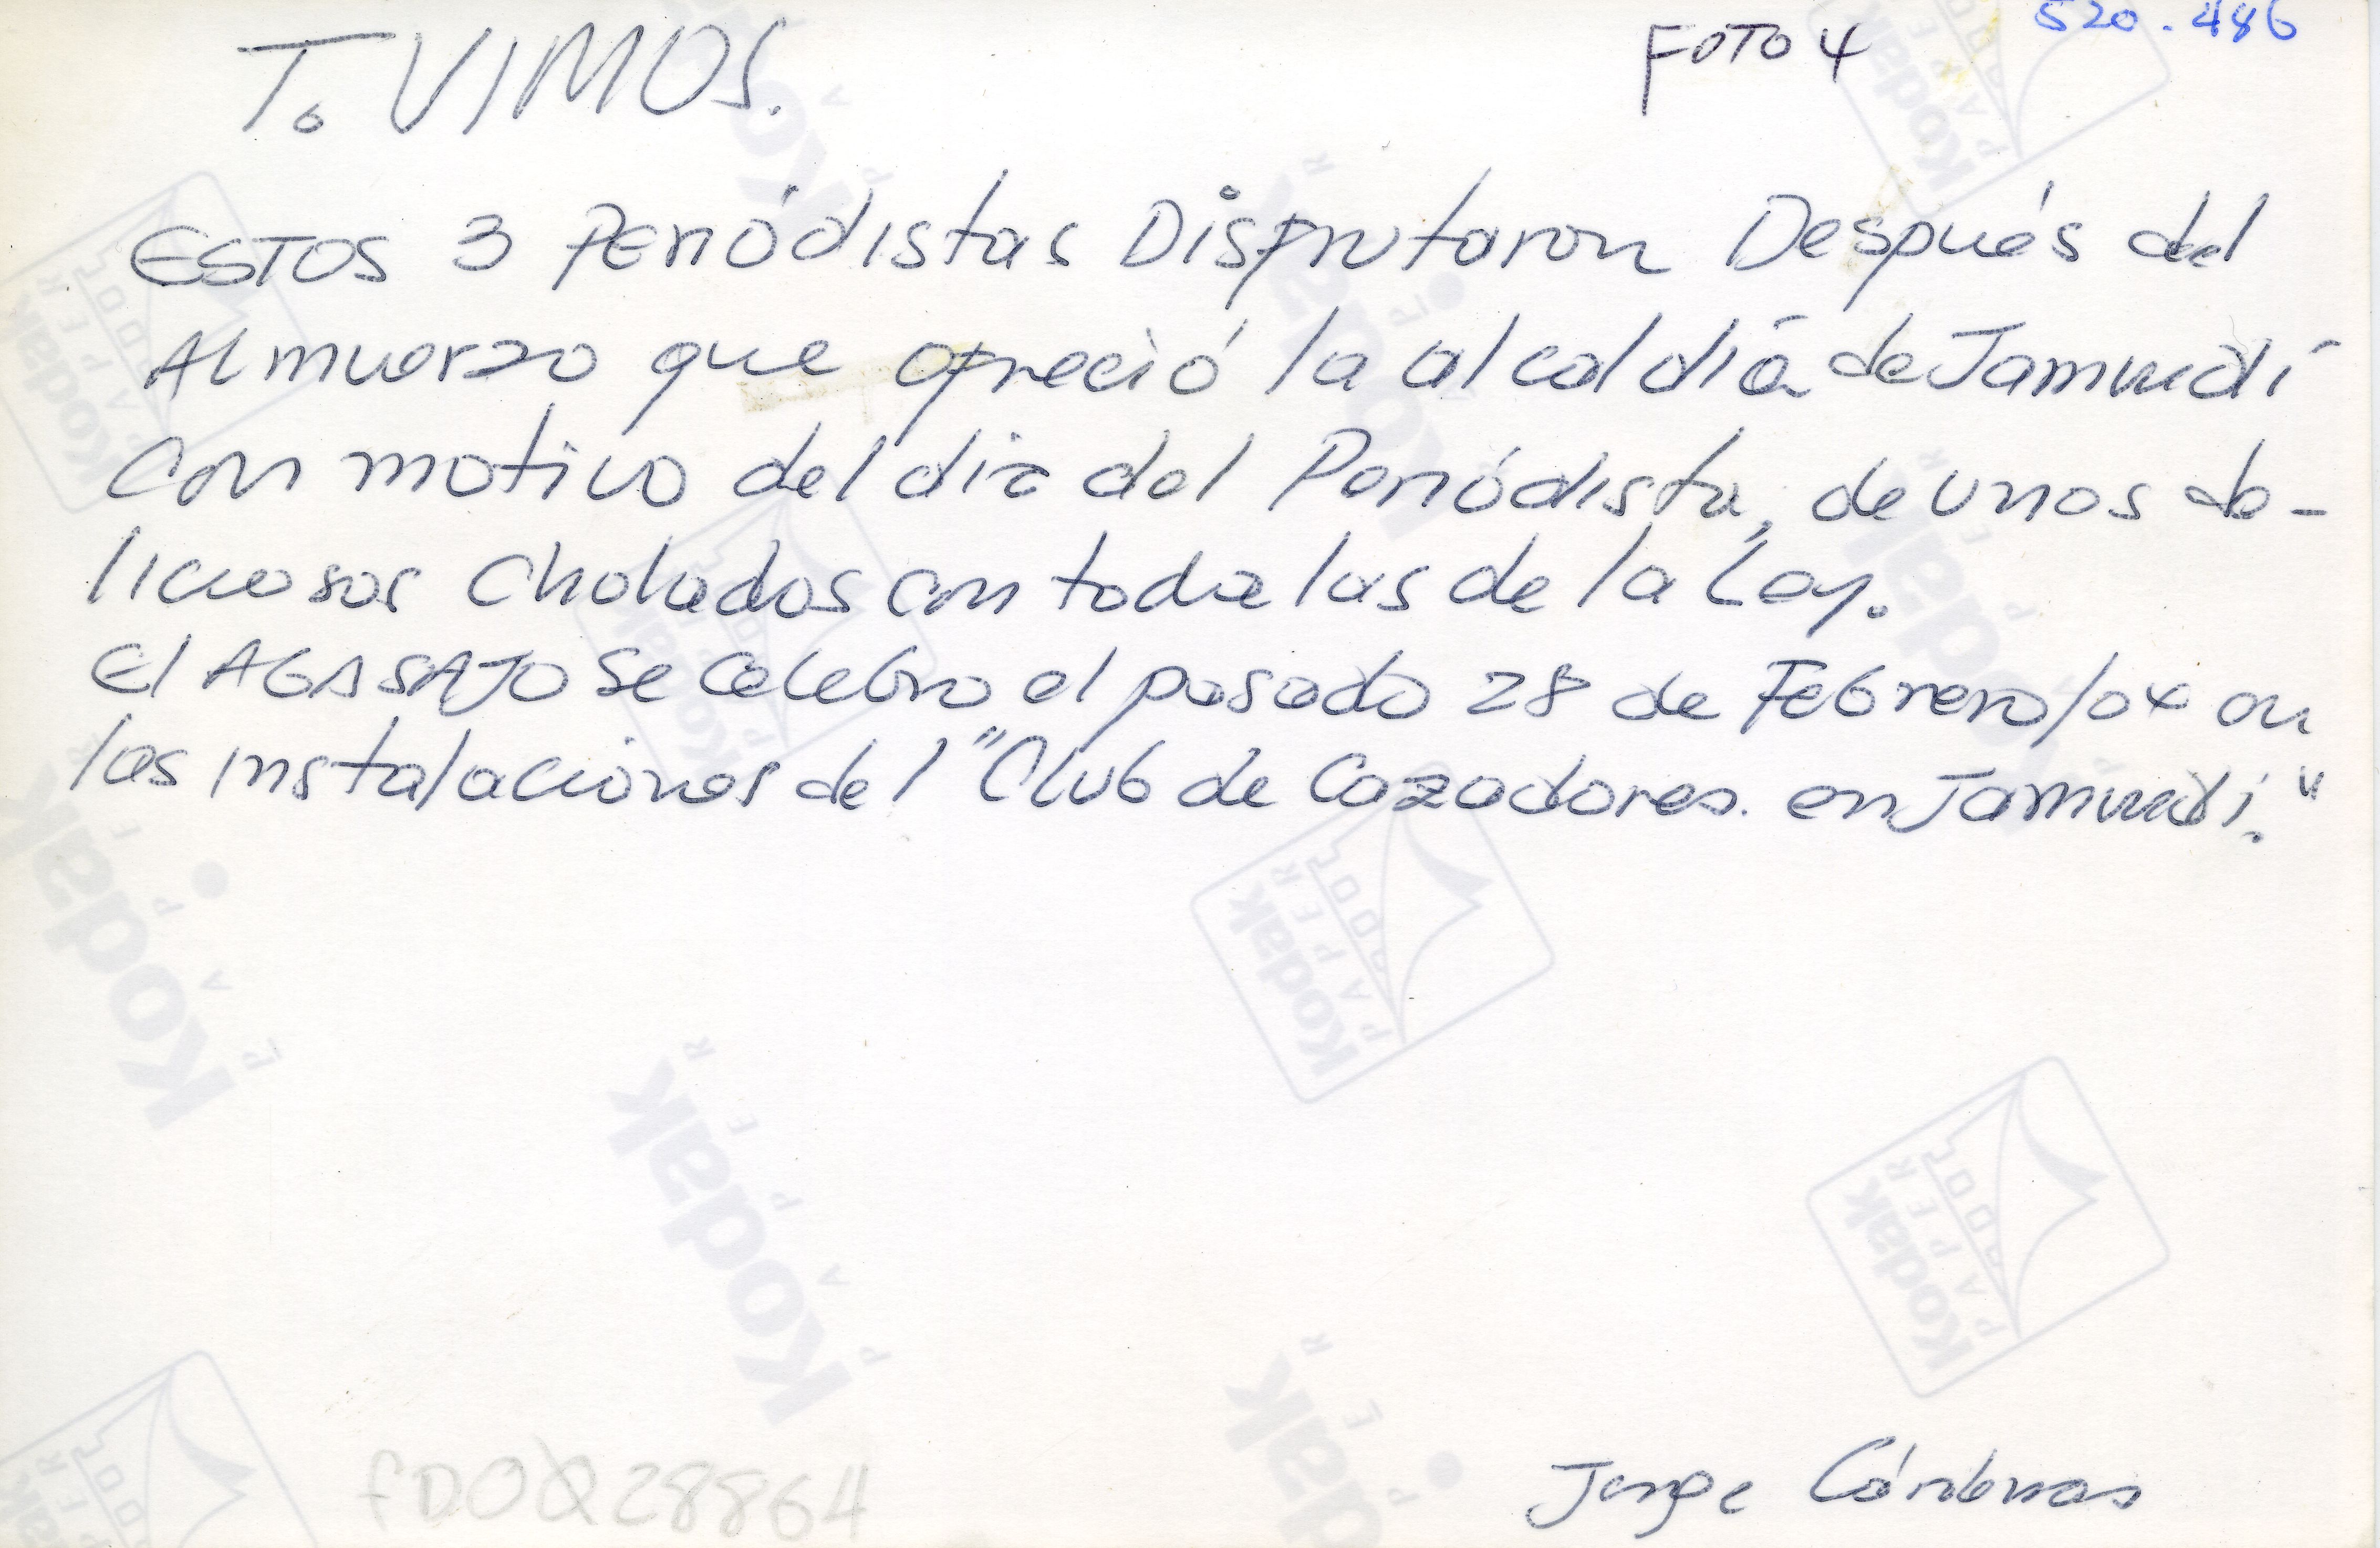 520.486
FOTO 4
Te VIMOS.
ESTOS 3 Periódistas Disfrutaron Después del
Almuerzo que ofreció la alcaldía de Jamundí
con motivo del dia del Periódista, de unos de-
liciosos Cholados con toda las de la Ley.
El AGASAJO se celebro el pasado 28 de Febrero/04 en
las instalaciones del "Club de Cazadores. en Jamundí."
FDOQ28864
Jorge Cárdenas
Kodak
PAPER
PAPEL